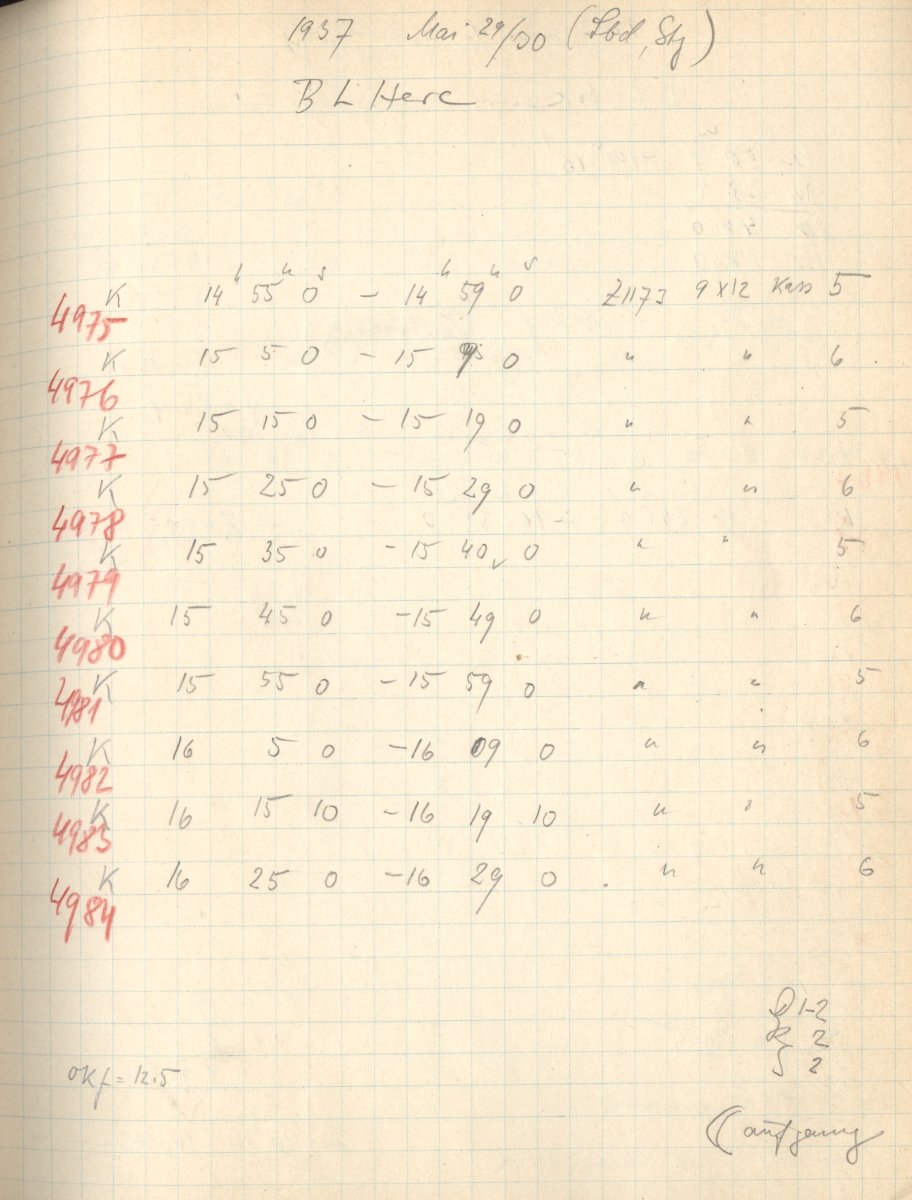 1937 Mai 29/30 (Sbd, Stj)
B L Herc
K 14h 55m 0s – 14h 59m 0s Z1173 9 x 12 Kass 5
4975
K 15 5 0 – 15 9 0 " " 6
4976
K 15 15 0 – 15 19 0 " " 5
4977
K 15 25 0 – 15 29 0 " " 6
4978
K 15 35 0 – 15 40 0 " " 5
4979
K 15 45 0 – 15 49 0 " " 6
4980
K 15 55 0 – 15 59 0 " " 5
4981
K 16 5 0 – 16 09 0 " " 6
4982
K 16 15 10 – 16 19 10 " " 5
4983
K 16 25 0 – 16 29 0 " " 6
4984
1-2
R 2
S 2
okf = 12.5
aufgang